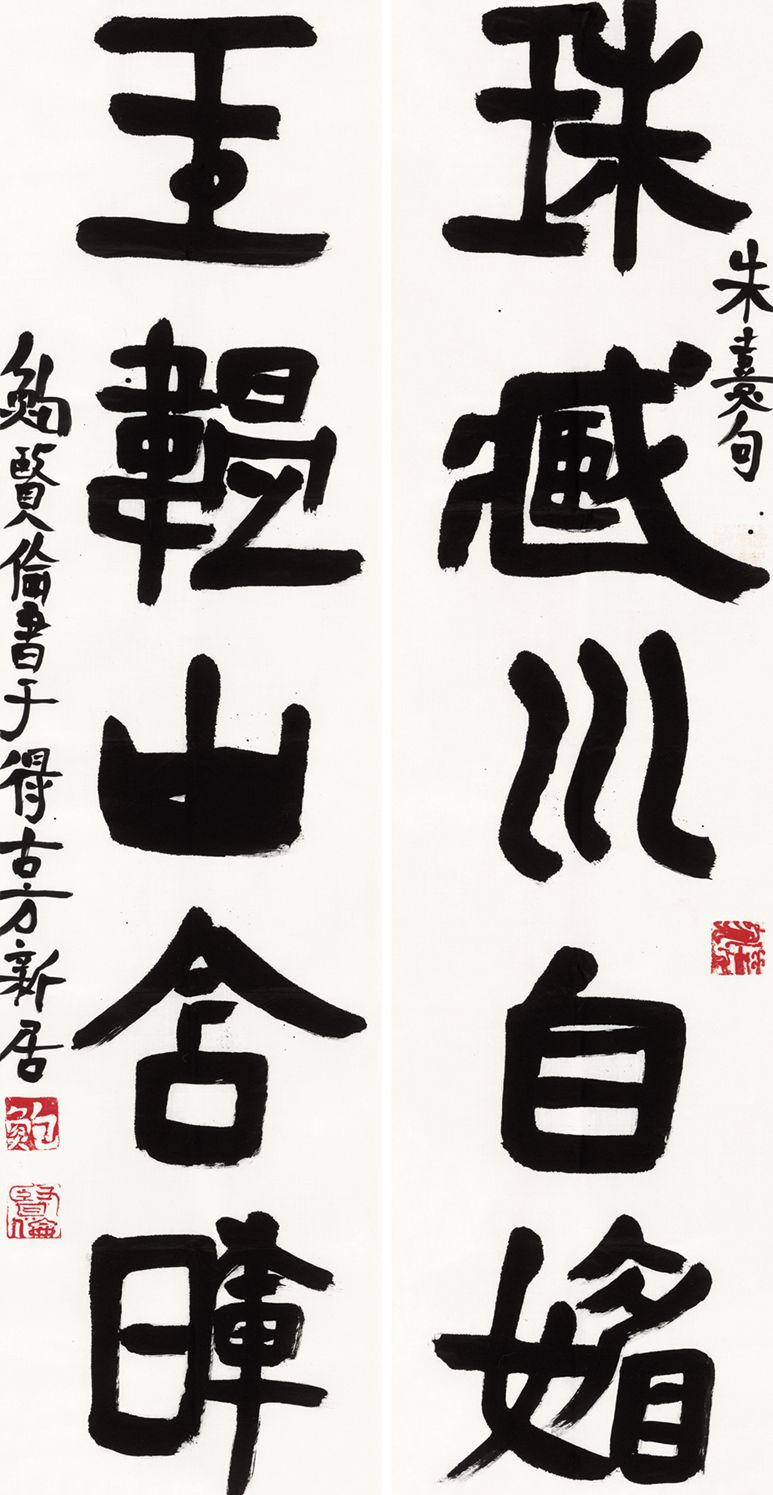 朱熹句
珠臧川自媚
玉韞山含暉
鮑賢倫書于得古方新居
鮑
賢倫